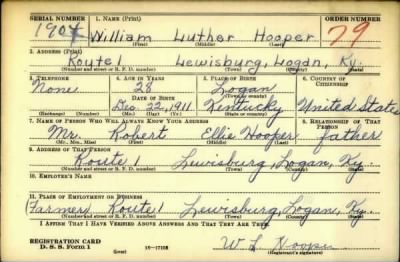 SERIAL NUMBER 1. NAME (Print) ORDER NUMBER
1904 William Luther Hooper 79
(First) (Middle) (Last)
2. ADDRESS (Print)
Route 1 Lewisburg, Logan, Ky.
(Number and street or R. F. D. number) (Town) (County) (State)
3. TELEPHONE 4. AGE IN YEARS 5. PLACE OF BIRTH 6. COUNTRY OF CITIZENSHIP
None 28 Logan
DATE OF BIRTH (Town or county)
Dec. 22, 1911 Kentucky United States
(Exchange) (Number) (Mo.) (Day) (Yr.) (State or country)
7. NAME OF PERSON WHO WILL ALWAYS KNOW YOUR ADDRESS 8. RELATIONSHIP OF THAT PERSON
Mr. Robert Ellie Hooper father
(Mr., Mrs., Miss) (First) (Middle) (Last)
9. ADDRESS OF THAT PERSON
Route 1 Lewisburg, Logan, Ky.
(Number and street or R. F. D. number) (Town) (County) (State)
10. EMPLOYER'S NAME
11. PLACE OF EMPLOYMENT OR BUSINESS
(Farmer) Route 1 Lewisburg, Logan, Ky.
(Number and street or R. F. D. number) (Town) (County) (State)
I AFFIRM THAT I HAVE VERIFIED ABOVE ANSWERS AND THAT THEY ARE TRUE.
REGISTRATION CARD
D. S. S. Form 1 (over) 16—17105 W L Hooper
(Registrant's signature)